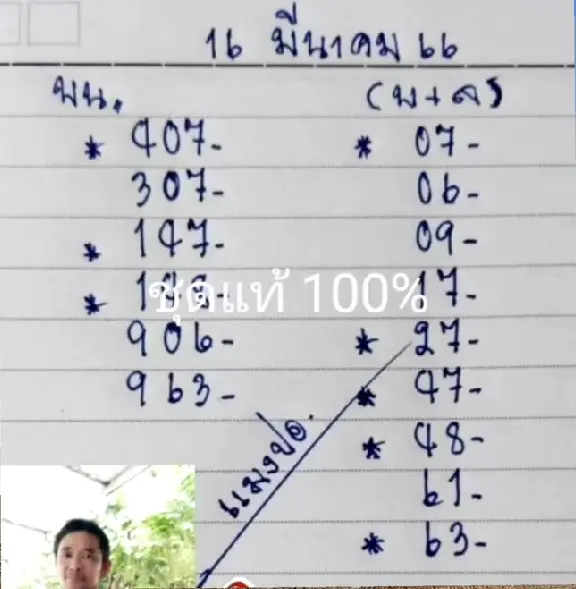 16 มีนาคม 66
บน.
(บ+ล)
* 407-
* 07-
307-
06-
* 147-
09-
*
17-
ชุดแท้ 100%
906-
* 27-
963-
* 47-
* 48-
แมงปอ.
61-
* 63-